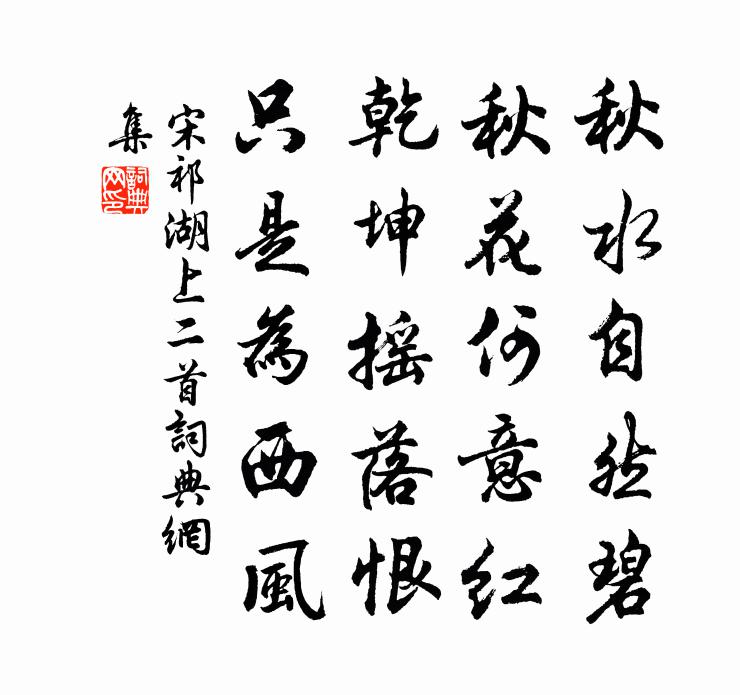 秋水自然碧
秋花何意红
乾坤摇落恨
只是為西風
宋祁湖上二首詞典網
集
詞典
网印